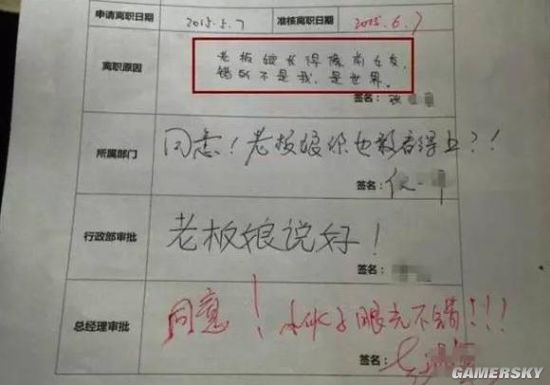 申请离职日期 2015.5.7 准核离职日期 2015.6.7
离职原因
老板娘长得像前女友,
错的不是我,是世界。
签名:
所属部门
同意!老板娘你也敢看得上?!
签名:
行政部审批
老板娘说好!
签名:
总经理审批
同意!小伙子眼光不错!!!
签名:
GAMERSKY